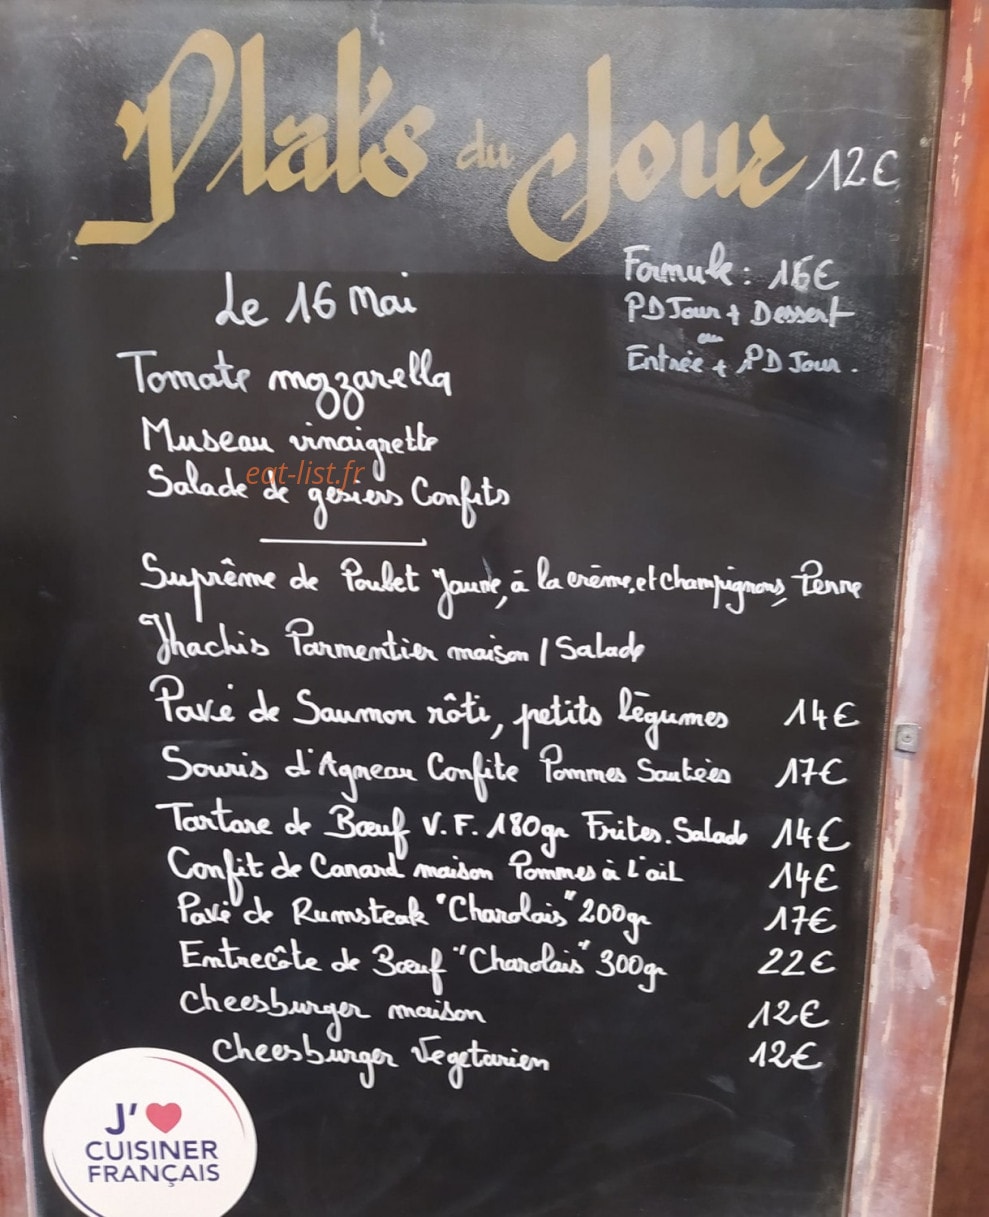 Plats du Jour 12€
Formule : 16€
PD Jour + Dessert
ou
Entrée + PD Jour.
Le 16 Mai
Tomate mozzarella
Museau vinaigrette
eat-list.fr
Salade de gesiers Confits
Suprême de Poulet Jaune, à la crème, et champignons, Penne
Hhachis Parmentier maison / Salade
Pavé de Saumon rôti, petits légumes 14€
Souris d'Agneau Confite Pommes Sautées 17€
Tartare de Bœuf V.F. 180gr Frites. Salade 14€
Confit de Canard maison Pommes à l'ail 14€
Pavé de Rumsteak "Charolais" 200gr 17€
Entrecôte de Bœuf "Charolais" 300gr 22€
Cheesburger maison 12€
Cheesburger Vegetarien 12€
J' ♥
CUISINER
FRANÇAIS